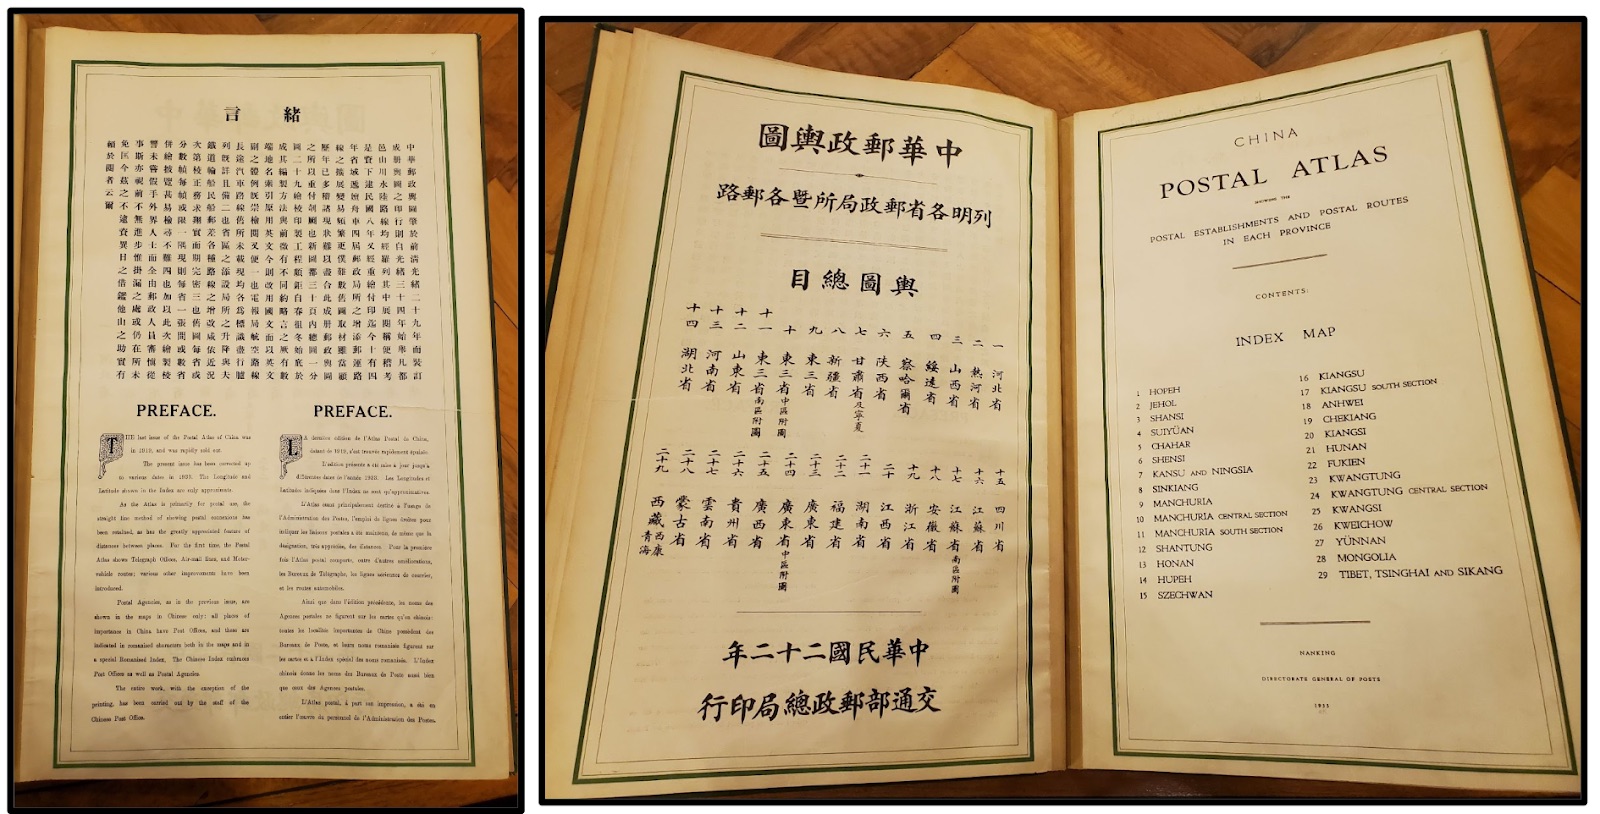 緒言
中華郵政輿圖肇於前清光緒二十九年而裝訂
成册輿圖之印行則自光緒三十四年始舉凡都
邑山川水陸路線均經羅列其中展閱稱便稽考
是賢下逮民國八年又經重繪付印迄今十有四
郵政局所之增添郵運路
線之擴展變易頻繁更僕難數舊圖取材雖當顧
歷年已多稽諸現狀難以盡合此成册郵政輿圖
之所以重付剞劂也新圖都三十頁內總圖一分
圖二十九繪校印製工程頗鉅自春徂冬始底於
成其編製方法與前微有不同約略言之厥有數
端地名索引原用英文今則改用國文而以英文
副之體例既崇檢閱又便一也電報局航空路線
長途汽車路線舊所未載現均各為標識盡行臚
列既詳且備二也省區之添設局所之升降與夫
鐵道輪船民船郵差各種路線之增改咸依近況
次第校正務求翔實而期完密三也舊圖每省或
分數幀每幀或限一隅現則每省一張間或數省
併繪披覽甚易檢尋不難四也加以此次繪製校
響未嘗假手外界人士而全由郵政人員審慎從
事斯亦視前進步惟掛漏之處或仍在所未
免匡今茲之不逮資異日之借鑑他山之助實有
顧於閱者云爾
PREFACE.
THE last issue of the Postal Atlas of China was
in 1919, and was rapidly sold out.
The present issue has been corrected up
to various dates in 1933. The Longitude and
Latitude shown in the Index are only approximate.
As the Atlas is primarily for postal use, the
straight line method of showing postal connexions has
been retained, as has the greatly appreciated feature of
distances between places. For the first time, the Postal
Atlas shows Telegraph Offices, Air-mail lines, and Motor-
vehicle routes; various other improvements have been
introduced.
Postal Agencies, as in the previous issue, are
shown in the maps in Chinese only: all places of
importance in China have Post Offices, and these are
indicated in romanised characters both in the maps and in
a special Romanised Index. The Chinese Index embraces
Post Offices as well as Postal Agencies.
The entire work, with the exception of the
printing, has been carried out by the staff of the
Chinese Post Office.
PREFACE.
LA dernière édition de l'Atlas Postal de Chine,
datant de 1919, s'est trouvée rapidement épuisée.
L'édition présente a été mise à jour jusqu'à
différentes dates de l'année 1933. Les Longitudes et
Latitudes indiquées dans l'Index ne sont qu'approximatives.
L'Atlas étant principalement destiné à l'usage de
l'Administration des Postes, l'emploi de lignes droites pour
indiquer les liaisons postales a été maintenu, de même que la
désignation, très appréciée, des distances. Pour la première
fois l'Atlas postal comporte, outre d'autres améliorations,
les Bureaux de Télégraphe, les lignes aériennes de courrier,
et les routes automobiles.
Ainsi que dans l'édition précédente, les noms des
Agences postales ne figurent sur les cartes qu'en chinois:
toutes les localités importantes de Chine possèdent des
Bureaux de Poste, et leurs noms romanisés figurent sur
les cartes et à l'Index spécial des noms romanisés. L'Index
chinois donne les noms des Bureaux de Poste aussi bien
que ceux des Agences postales.
L'Atlas postal, à part son impression, a été en
entier l'œuvre du personnel de l'Administration des Postes.
中華郵政輿圖
列明各省郵政局所暨各郵路
輿圖總目
一 河北省
二 熱河省
三 山西省
四 綏遠省
五 察哈爾省
六 陝西省
七 甘肅省及寧夏
八 新疆省
九 東三省
十 東三省中區附圖
十一 東三省南區附圖
十二 山東省
十三 河南省
十四 湖北省
十五 四川省
十六 江蘇省
十七 江蘇省南區附圖
十八 安徽省
十九 浙江省
二十 江西省
二十一 湖南省
二十二 福建省
二十三 廣東省
二十四 廣東省中區附圖
二十五 廣西省
二十六 貴州省
二十七 雲南省
二十八 蒙古
二十九 西藏西康青海
中華民國二十二年
交通部郵政總局印行
CHINA
POSTAL ATLAS
SHOWING THE
POSTAL ESTABLISHMENTS AND POSTAL ROUTES
IN EACH PROVINCE
CONTENTS:
INDEX MAP
1 HOPEH
2 JEHOL
3 SHANSI
4 SUIYÜAN
5 CHAHAR
6 SHENSI
7 KANSU AND NINGSIA
8 SINKIANG
9 MANCHURIA
10 MANCHURIA CENTRAL SECTION
11 MANCHURIA SOUTH SECTION
12 SHANTUNG
13 HONAN
14 HUPEH
15 SZECHWAN
16 KIANGSU
17 KIANGSU SOUTH SECTION
18 ANHWEI
19 CHEKIANG
20 KIANGSI
21 HUNAN
22 FUKIEN
23 KWANGTUNG
24 KWANGTUNG CENTRAL SECTION
25 KWANGSI
26 KWEICHOW
27 YÜNNAN
28 MONGOLIA
29 TIBET, TSINGHAI AND SIKANG
NANKING
DIRECTORATE GENERAL OF POSTS
1933